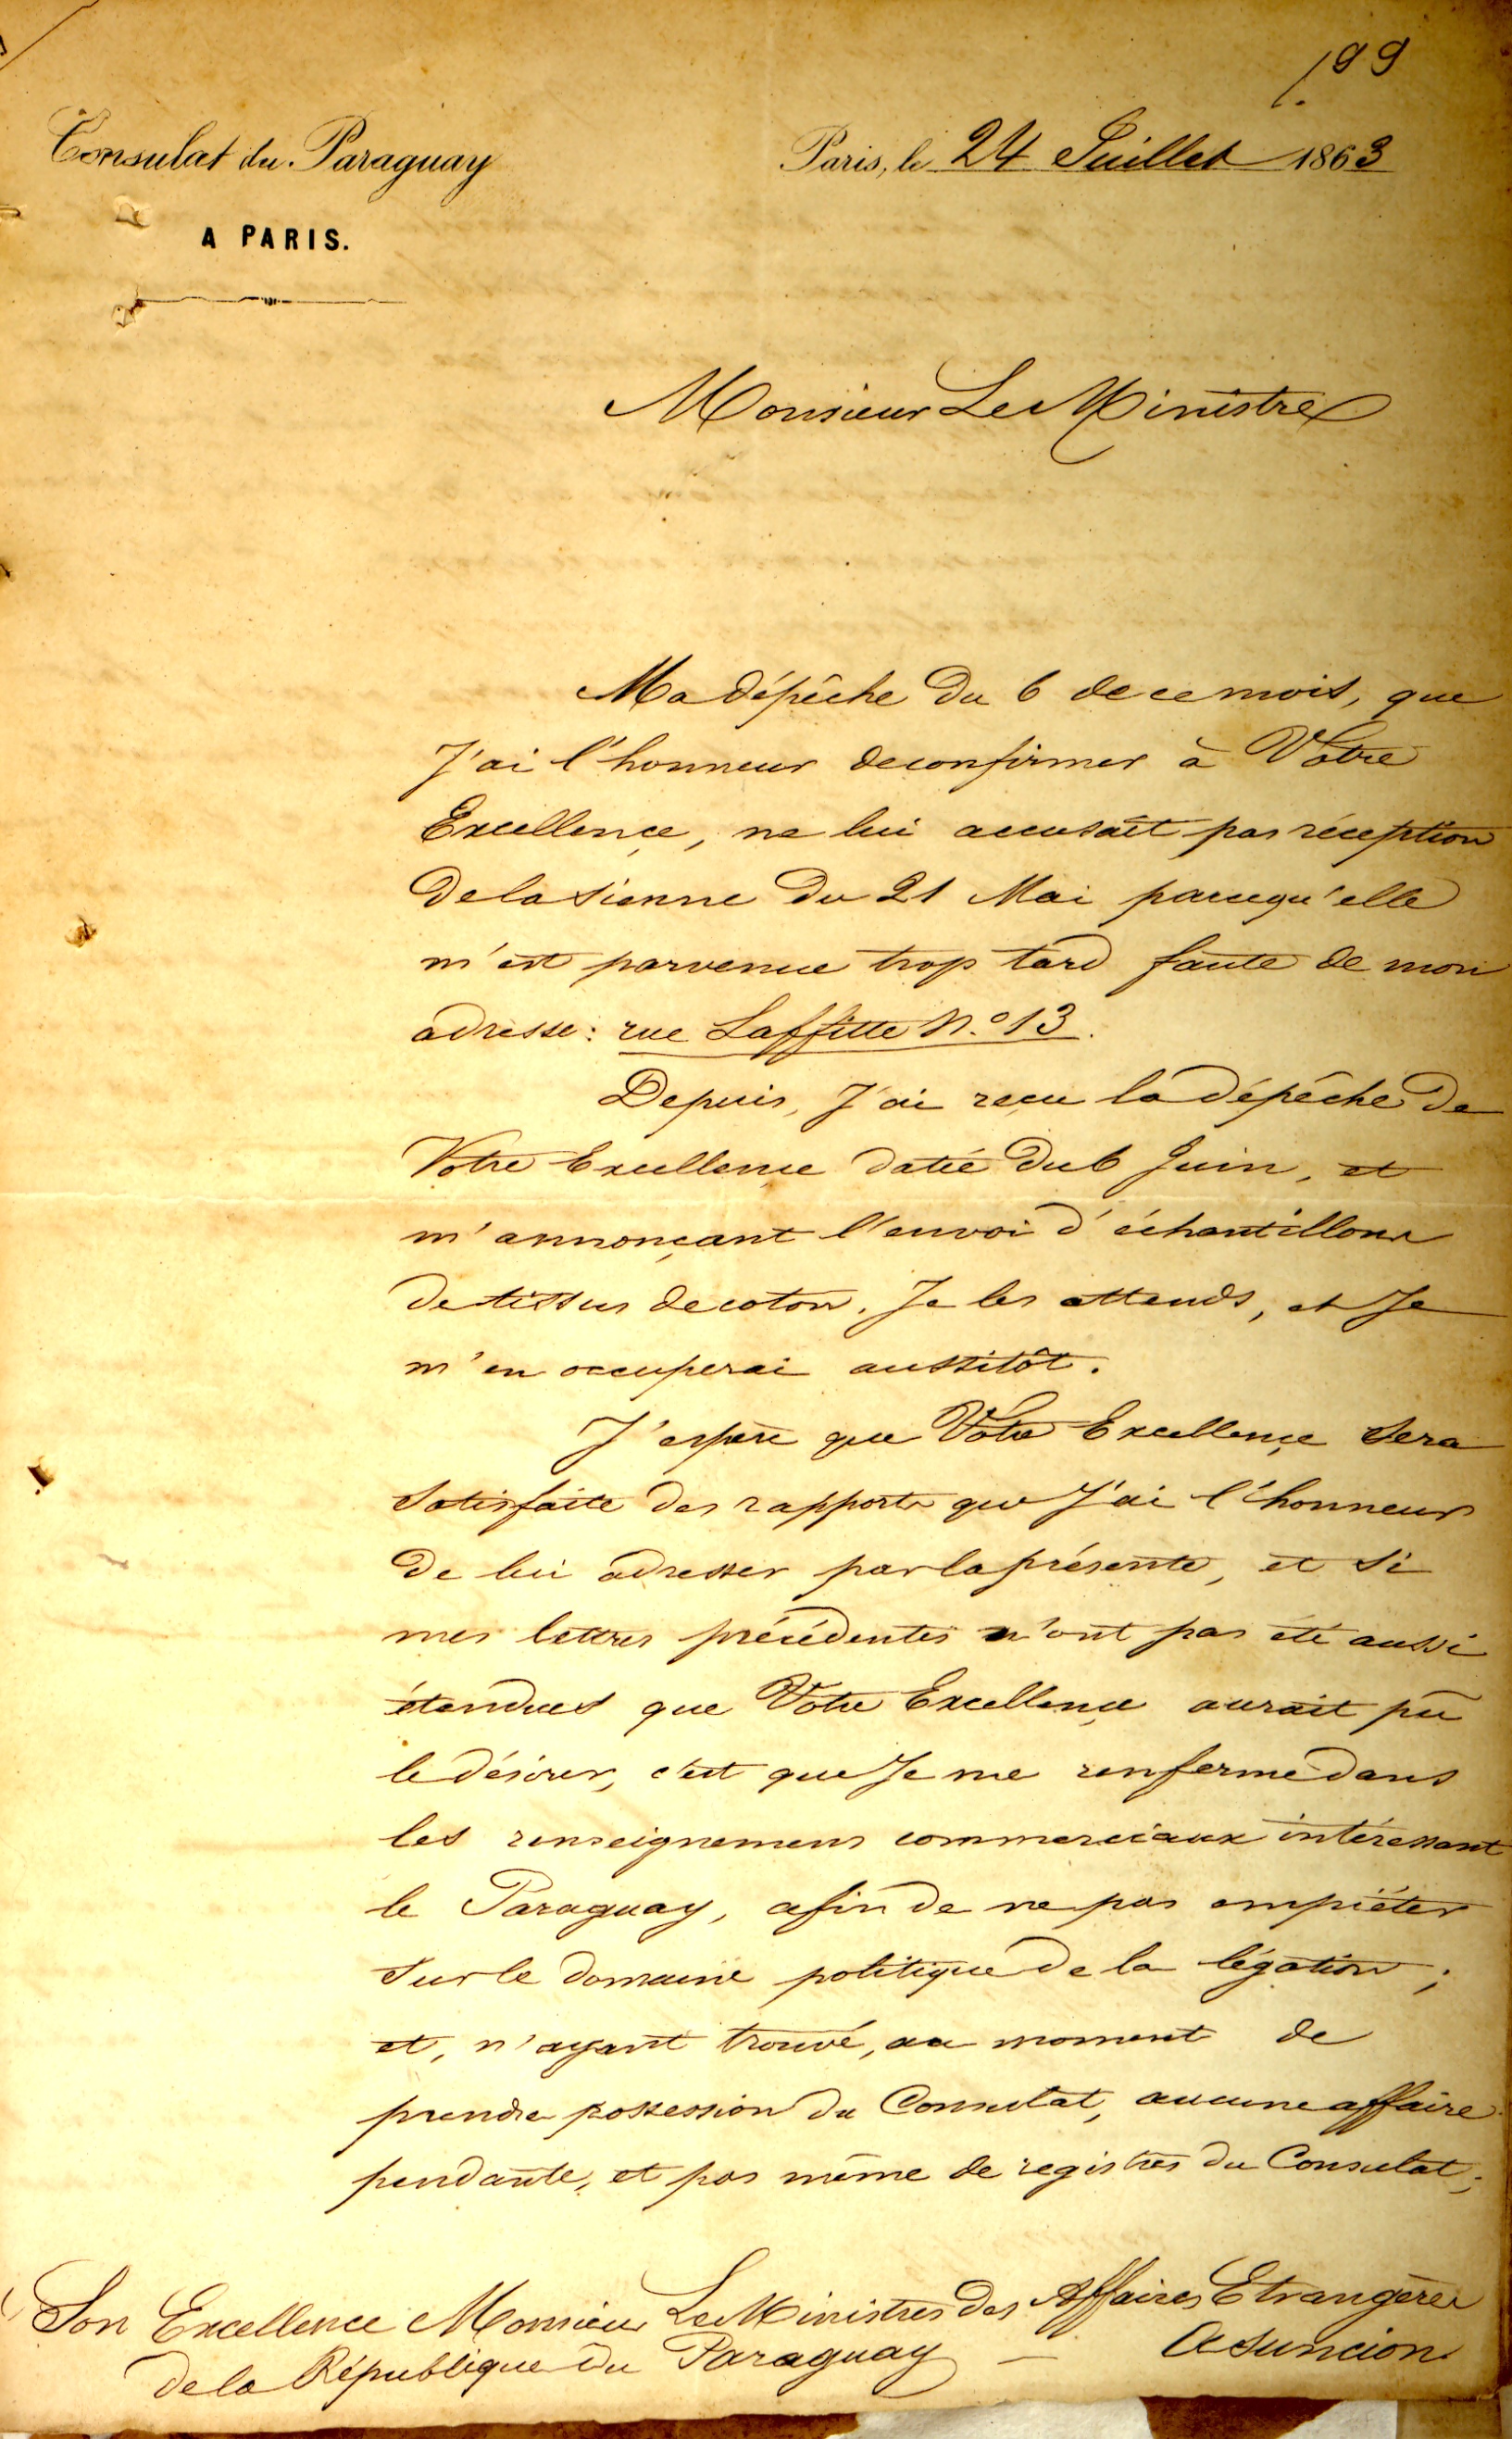 199
Consulat du Paraguay
A PARIS.
Paris, le 24 Juillet 1863
Monsieur Le Ministre
Ma dépêche du 6 de ce mois, que
J'ai l'honneur de confirmer à Votre
Excellençe, ne lui accusait pas réception
de la sienne du 21 Mai parcequ'elle
m'est parvenue trop tard faute de mon
adresse: rue Laffitte N.º 13.
Depuis, J'ai recu la dépêche de
Votre Excellençe datée du 6 Juin, et
m'annonçant l'envoi d'échantillons
de tissus de coton. Je les attends, et Je
m'en occuperai aussitôt.
J'espère que Votre Excellençe sera
satisfaite des rapports que J'ai l'honneur
de lui adresser par la présente, et si
mes lettres précédentes n'ont pas été aussi
étendues que Votre Excellençe aurait pû
le désirer, c'est que Je me renferme dans
les renseignemens commerciaux intéressant
le Paraguay, afin de ne pas empiéter
sur le domaine politique de la légation;
et, n'ayant trouvé, au moment de
prendre possession du Consulat, aucune affaire
pendante, et pas même de registres du Consulat;
Son Excellence Monsieur Le Ministres des Affaires Etrangères
de la République du Paraguay — Asuncion.